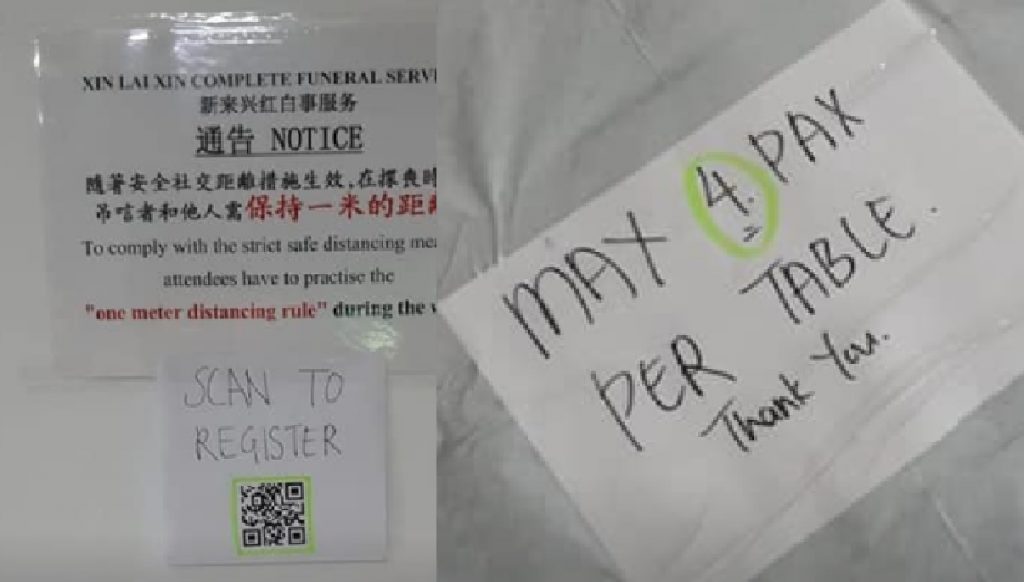 XIN LAI XIN COMPLETE FUNERAL
新来兴红白事服务
通告 NOTICE
随著安全社交距離措施生效,在探喪
吊唁者和他人需保持一米的距
To comply with the strict safe distancing
attendees have to practise the
"one meter distancing rule" during the
SCAN TO
REGISTER
MAX 4. PAX
PER TABLE.
Thank You.